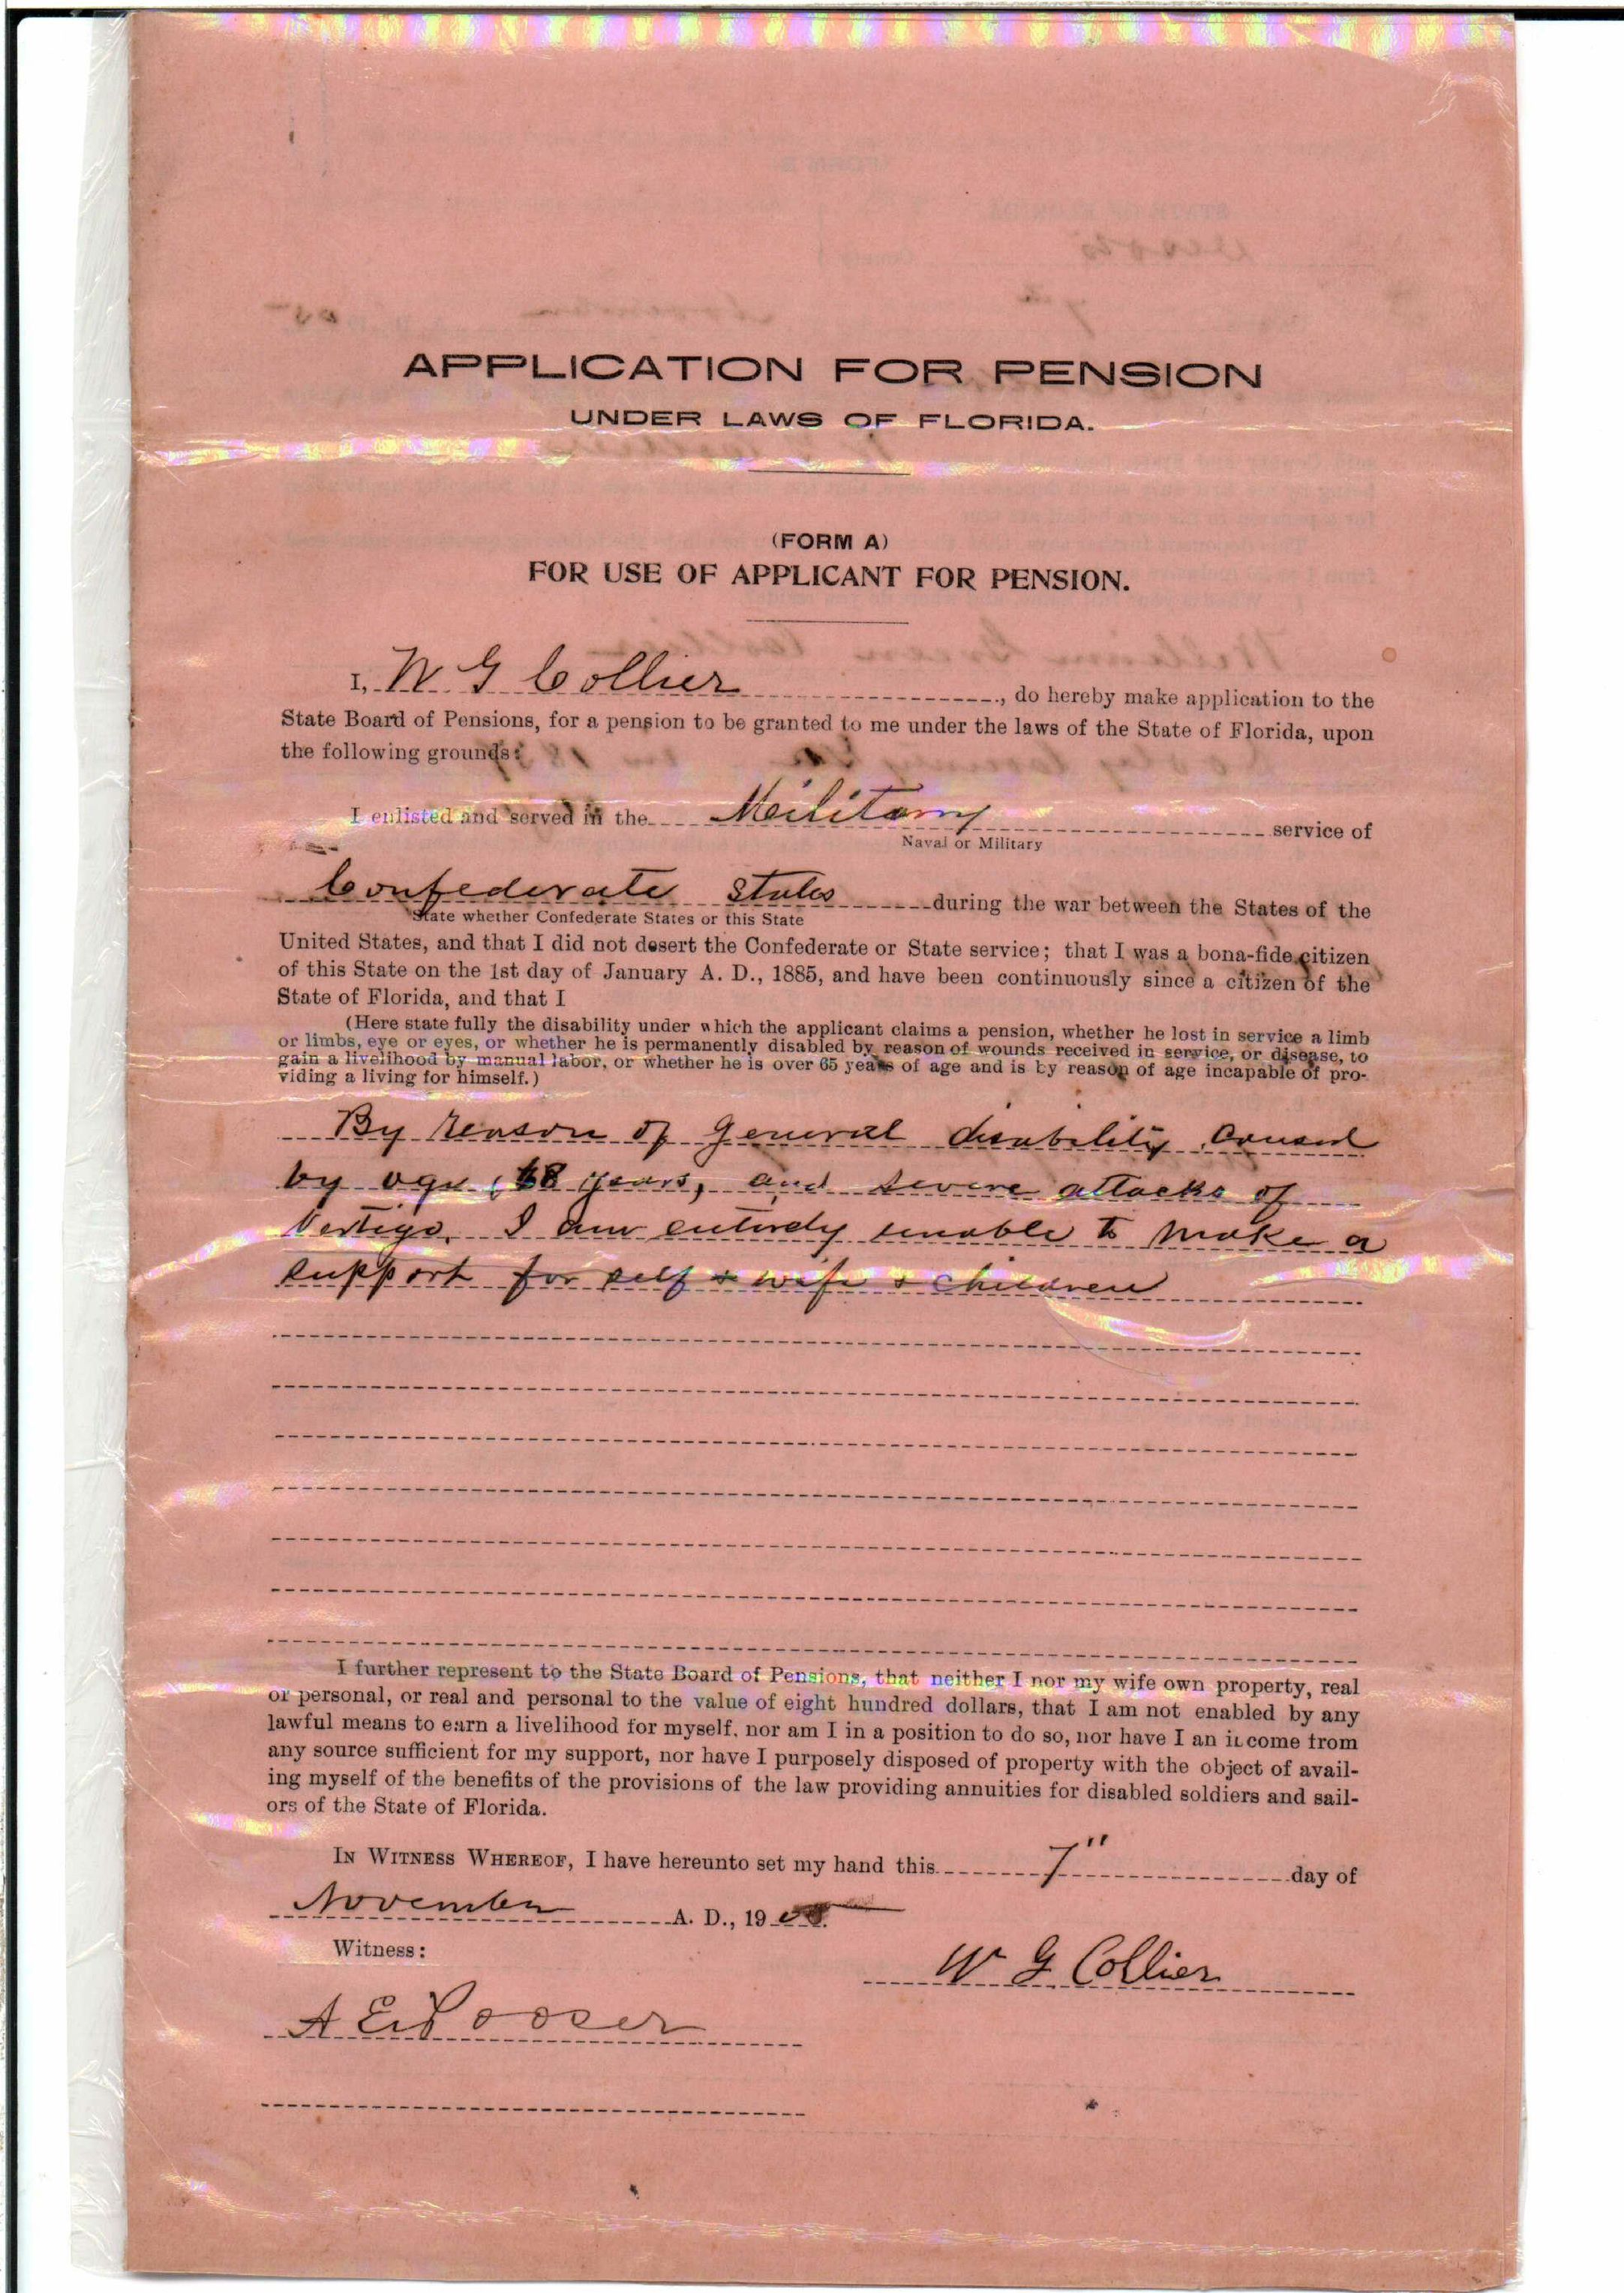 APPLICATION FOR PENSION
UNDER LAWS OF FLORIDA.
(FORM A)
FOR USE OF APPLICANT FOR PENSION.
I, W G Collier, do hereby make application to the
State Board of Pensions, for a pension to be granted to me under the laws of the State of Florida, upon
the following grounds:
I enlisted and served in the Military service of
Naval or Military
Confederate States during the war between the States of the
State whether Confederate States or this State
United States, and that I did not desert the Confederate or State service; that I was a bona-fide citizen
of this State on the 1st day of January A. D., 1885, and have been continuously since a citizen of the
State of Florida, and that I
(Here state fully the disability under which the applicant claims a pension, whether he lost in service a limb
or limbs, eye or eyes, or whether he is permanently disabled by reason of wounds received in service, or disease, to
gain a livelihood by manual labor, or whether he is over 65 years of age and is by reason of age incapable of pro-
viding a living for himself.)
By reason of general disability caused
by age, 68 years, and severe attacks of
Vertigo. I am entirely unable to make a
support for self + wife + children
I further represent to the State Board of Pensions, that neither I nor my wife own property, real
or personal, or real and personal to the value of eight hundred dollars, that I am not enabled by any
lawful means to earn a livelihood for myself, nor am I in a position to do so, nor have I an income from
any source sufficient for my support, nor have I purposely disposed of property with the object of avail-
ing myself of the benefits of the provisions of the law providing annuities for disabled soldiers and sail-
ors of the State of Florida.
IN WITNESS WHEREOF, I have hereunto set my hand this 7" day of
November A. D., 19
Witness:
W G Collier
A E Pooser